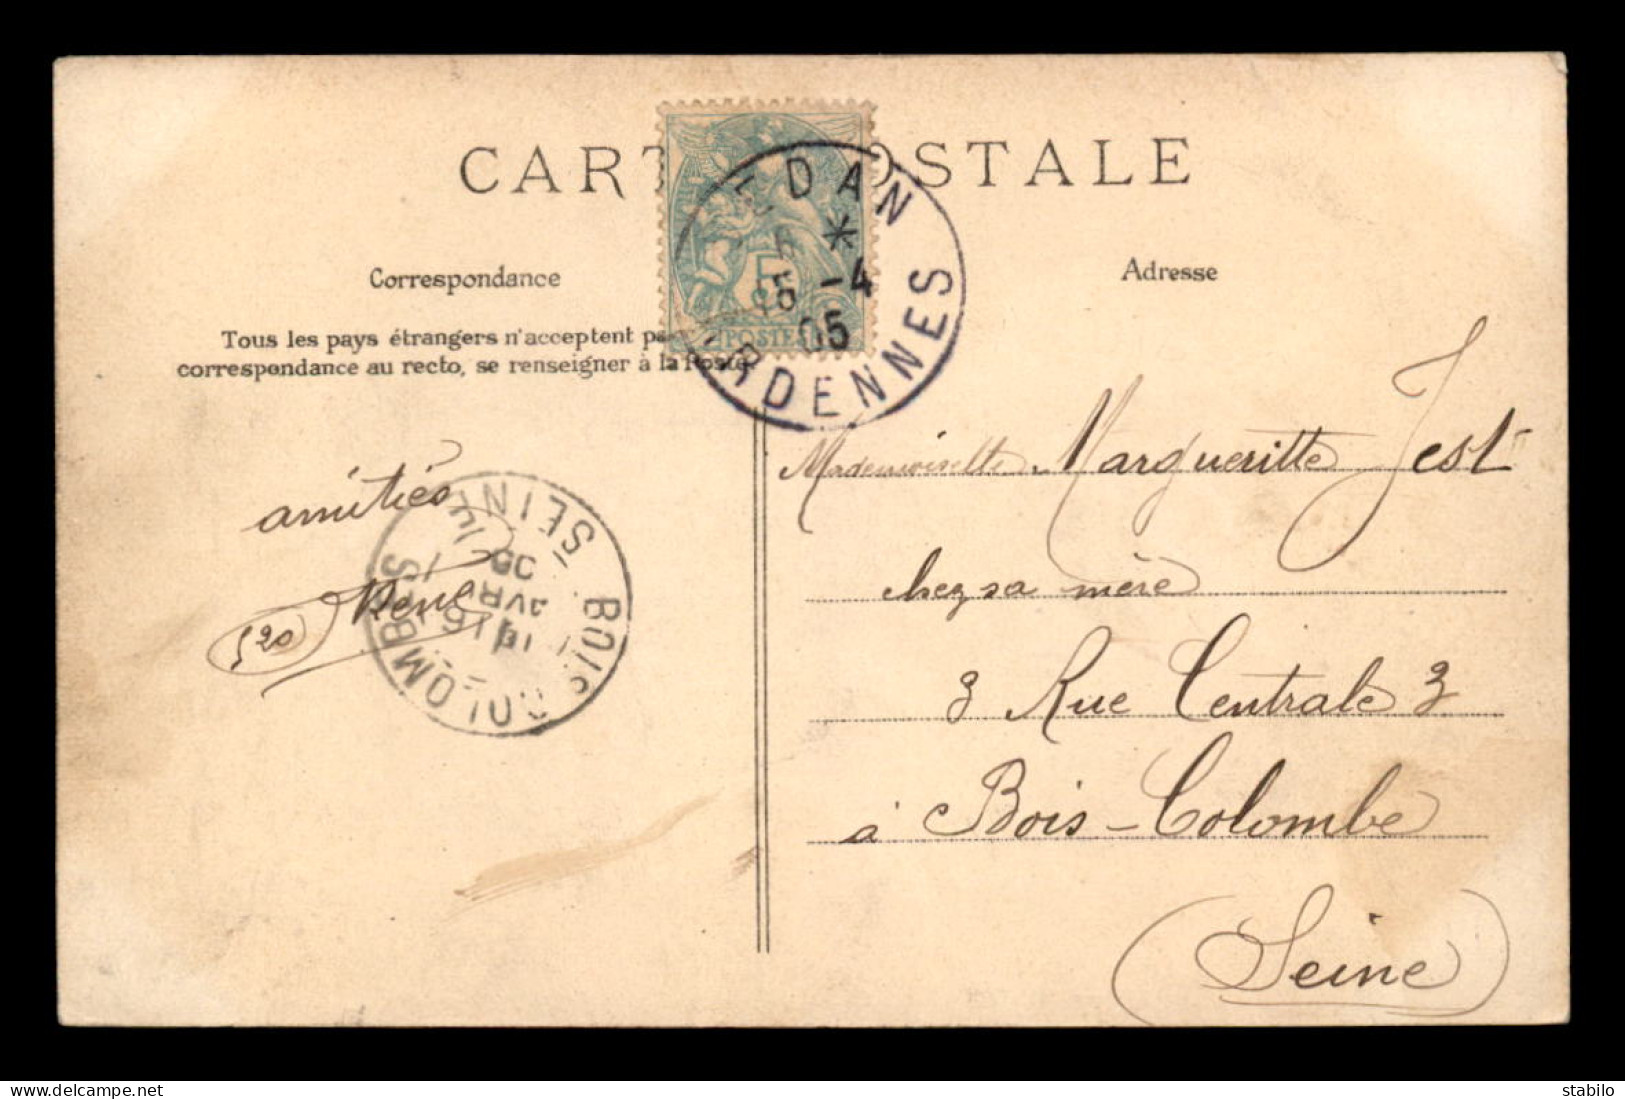 CARTE POSTALE
Correspondance
Adresse
Tous les pays étrangers n'acceptent pas
correspondance au recto, se renseigner à la Poste
5
POSTES
SEDAN
15 -4
05
ARDENNES
amitiés
René
520
BOIS COLOMBES
SEINE
16
AVRIL
05
Mademoiselle Margueritte Jest
chez sa mère
3 Rue Centrale 3
à Bois-Colombe
(Seine)
www.delcampe.net
stabilo